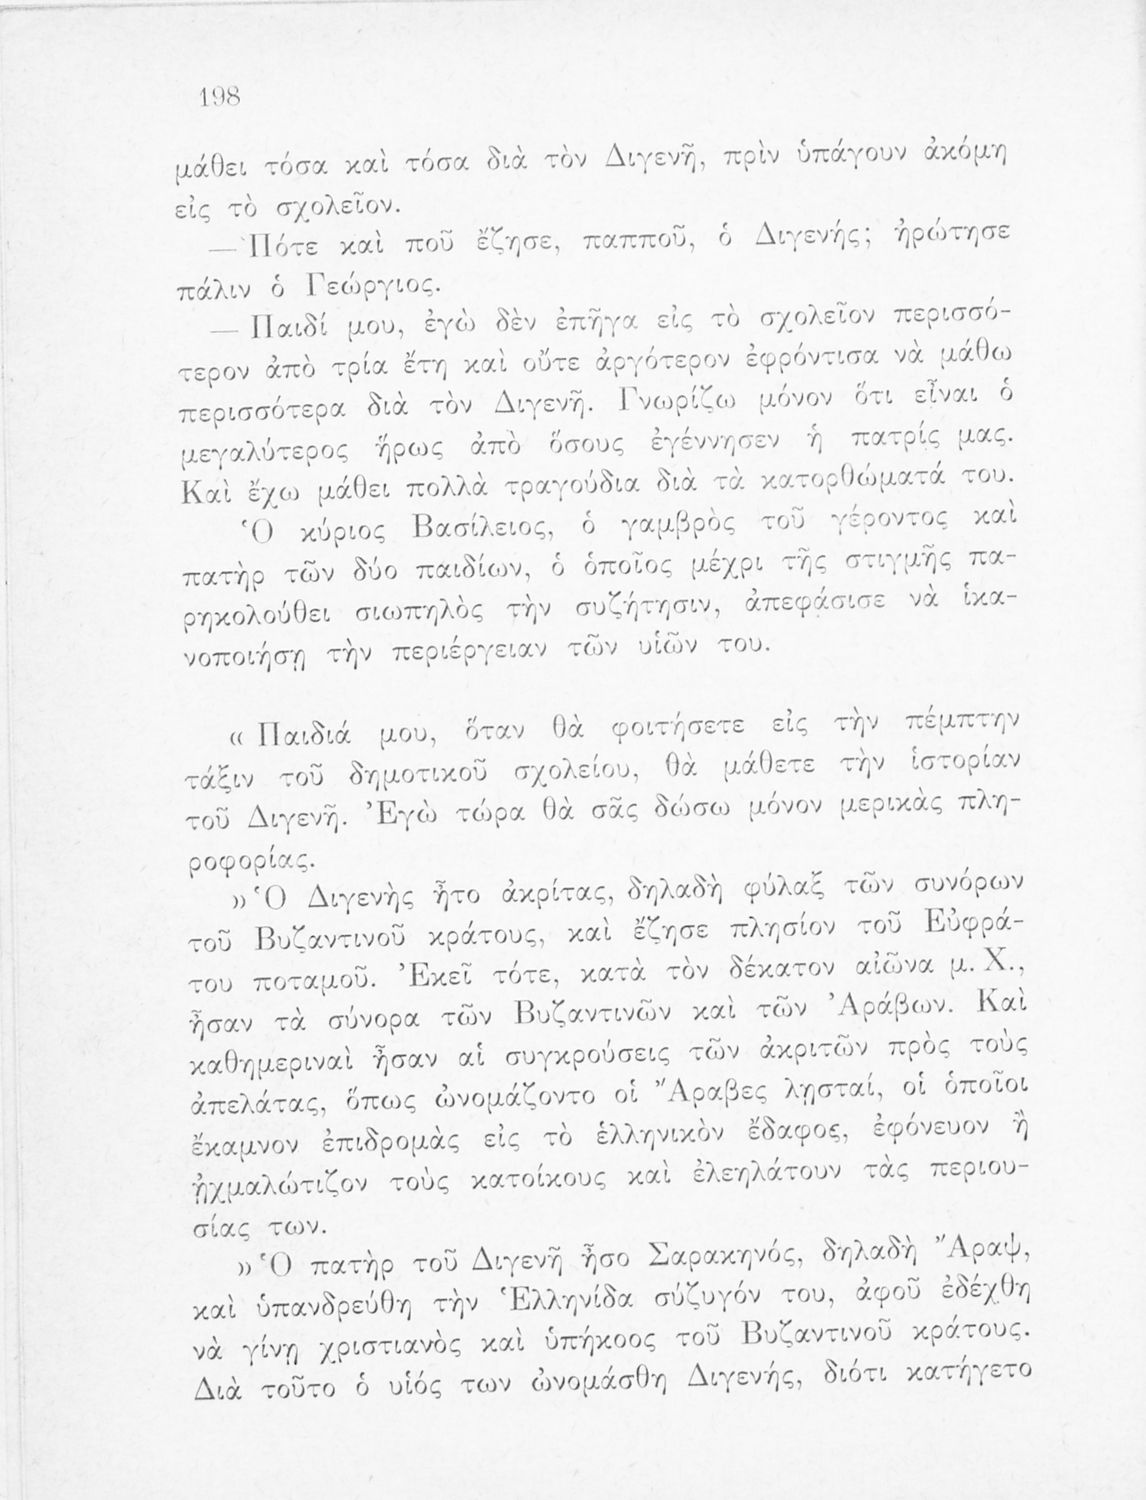 198
μάθει τόσα καὶ τόσα διὰ τὸν Διγενῆ, πρὶν ὑπάγουν ἀκόμη
εἰς τὸ σχολεῖον.
— Πότε καὶ ποῦ ἔζησε, παπποῦ, ὁ Διγενής; ἠρώτησε
πάλιν ὁ Γεώργιος.
— Παιδί μου, ἐγὼ δὲν ἐπῆγα εἰς τὸ σχολεῖον περισσό-
τερον ἀπὸ τρία ἔτη καὶ οὔτε ἀργότερον ἐφρόντισα νὰ μάθω
περισσότερα διὰ τὸν Διγενῆ. Γνωρίζω μόνον ὅτι εἶναι ὁ
μεγαλύτερος ἥρως ἀπὸ ὅσους ἐγέννησεν ἡ πατρίς μας.
Καὶ ἔχω μάθει πολλὰ τραγούδια διὰ τὰ κατορθώματά του.
Ὁ κύριος Βασίλειος, ὁ γαμβρὸς τοῦ γέροντος καὶ
πατὴρ τῶν δύο παιδίων, ὁ ὁποῖος μέχρι τῆς στιγμῆς πα-
ρηκολούθει σιωπηλὸς τὴν συζήτησιν, ἀπεφάσισε νὰ ἱκα-
νοποιήσῃ τὴν περιέργειαν τῶν υἱῶν του.
« Παιδιά μου, ὅταν θὰ φοιτήσετε εἰς τὴν πέμπτην
τάξιν τοῦ δημοτικοῦ σχολείου, θὰ μάθετε τὴν ἱστορίαν
τοῦ Διγενῆ. Ἐγὼ τώρα θὰ σᾶς δώσω μόνον μερικὰς πλη-
ροφορίας.
» Ὁ Διγενὴς ἦτο ἀκρίτας, δηλαδὴ φύλαξ τῶν συνόρων
τοῦ Βυζαντινοῦ κράτους, καὶ ἔζησε πλησίον τοῦ Εὐφρά-
του ποταμοῦ. Ἐκεῖ τότε, κατὰ τὸν δέκατον αἰῶνα μ. Χ.,
ἦσαν τὰ σύνορα τῶν Βυζαντινῶν καὶ τῶν Ἀράβων. Καὶ
καθημεριναὶ ἦσαν αἱ συγκρούσεις τῶν ἀκριτῶν πρὸς τοὺς
ἀπελάτας, ὅπως ὠνομάζοντο οἱ Ἄραβες λῃσταί, οἱ ὁποῖοι
ἔκαμνον ἐπιδρομὰς εἰς τὸ ἑλληνικὸν ἔδαφος, ἐφόνευον ἢ
ᾐχμαλώτιζον τοὺς κατοίκους καὶ ἐλεηλάτουν τὰς περιου-
σίας των.
» Ὁ πατὴρ τοῦ Διγενῆ ἦσο Σαρακηνός, δηλαδὴ Ἄραψ,
καὶ ὑπανδρεύθη τὴν Ἑλληνίδα σύζυγόν του, ἀφοῦ ἐδέχθη
νὰ γίνῃ χριστιανὸς καὶ ὑπήκοος τοῦ Βυζαντινοῦ κράτους.
Διὰ τοῦτο ὁ υἱός των ὠνομάσθη Διγενής, διότι κατήγετο